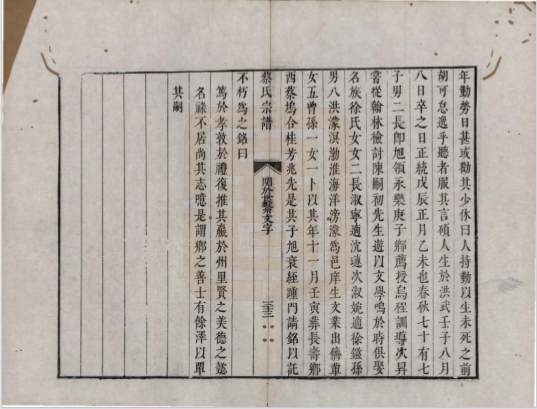 年勤勞日甚或勸其少休曰人持動以生未死之前
胡可怠逸乎聽者服其言碩人生於洪武壬子八月
八日卒之日正統戊辰正月乙未也春秋七十有七
子男二長即旭領永樂庚子鄉薦授烏程訓導次昇
嘗從翰林檢討陳嗣初先生遊以文學鳴於時俱娶
名族徐氏女女二長淑寧適沈璉次淑婉適徐鎰孫
男八洪濛淇渤淮海洋滂濛為邑庠生文業出儕輩
女五曾孫一女一卜以其年十一月壬寅葬長壽鄉
西蔡塢合桂芳兆先是其子旭衰絰踵門請銘以託
不朽為之銘曰
蔡氏宗譜
關於世系文字
三十三
篤於孝敦於禮復推其贏於州里賢之美德之懿
名祿不居尚其志噫是謂鄉之善士有餘澤以覃
其嗣